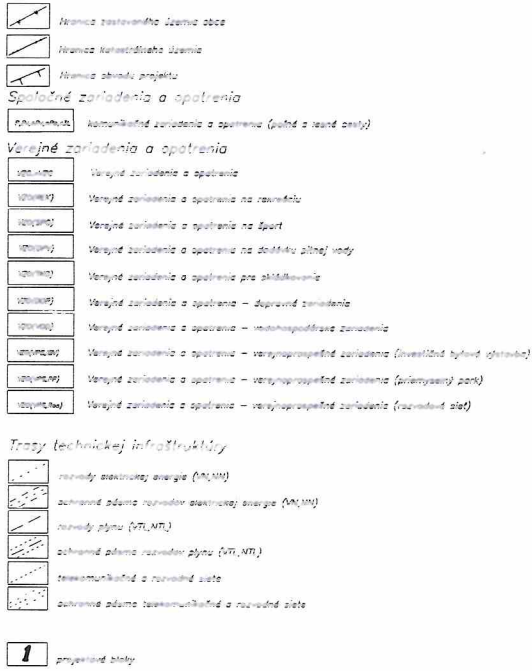 Hranica zastavaného územia obce
Hranica katastrálneho územia
Hranica obvodu projektu
Spoločné zariadenia a opatrenia
komunikačné zariadenia a opatrenia (poľné a lesné cesty)
Verejné zariadenia a opatrenia
Verejné zariadenia a opatrenia
Verejné zariadenia a opatrenia na rekreáciu
Verejné zariadenia a opatrenia na šport
Verejné zariadenia a opatrenia na dodávku pitnej vody
Verejné zariadenia a opatrenia pre skládkovanie
Verejné zariadenia a opatrenia – dopravné zariadenia
Verejné zariadenia a opatrenia – vodohospodárske zariadenia
Verejné zariadenia a opatrenia – verejnoprospešné zariadenia (investičná bytová výstavba)
Verejné zariadenia a opatrenia – verejnoprospešné zariadenia (priemyselný park)
Verejné zariadenia a opatrenia – verejnoprospešné zariadenia (rozvodová sieť)
Trasy technickej infraštruktúry
rozvody elektrickej energie (VN,NN)
ochranné pásmo rozvodov elektrickej energie (VN,NN)
rozvody plynu (VTL,NTL)
ochranné pásmo rozvodov plynu (VTL,NTL)
telekomunikačné a rozvodné siete
ochranné pásmo telekomunikačné a rozvodné siete
1 projektové bloky